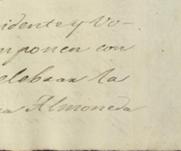 sidente y Vo-
mponen con
elebran la
a Almoneda